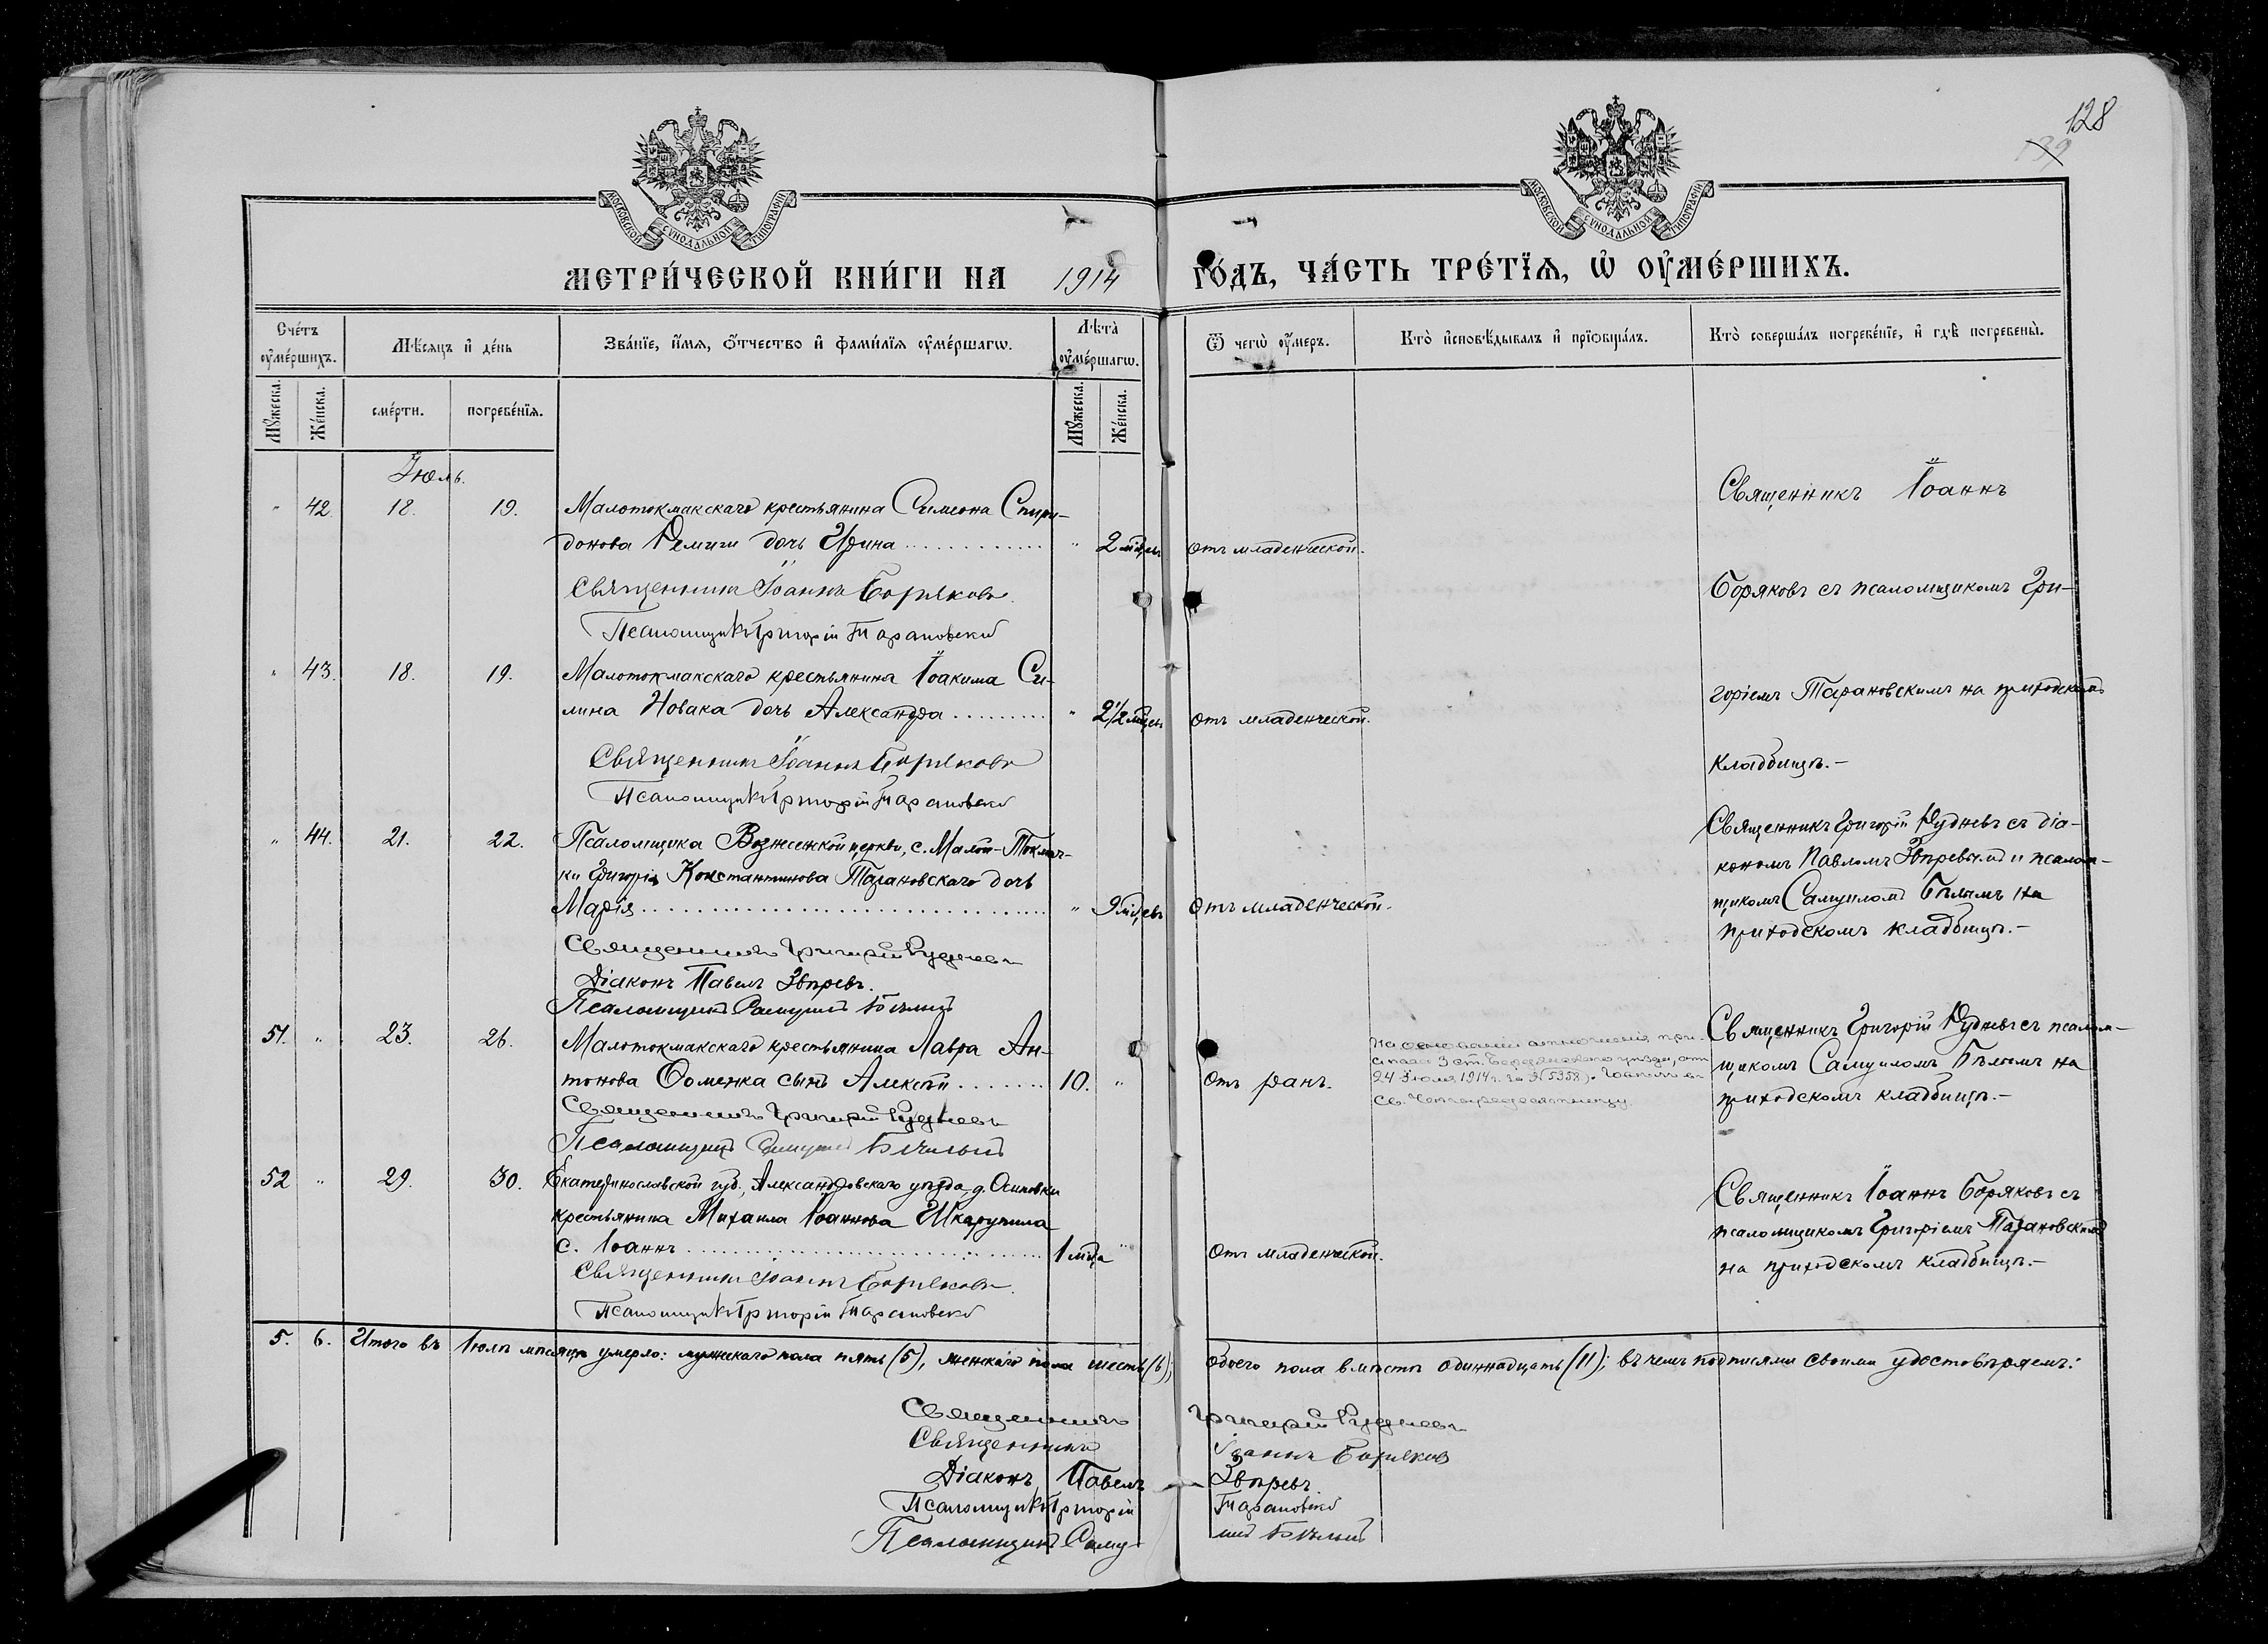 128
139
МОСКОВСКОЙ СѴНОДАЛЬНОЙ ТИПОГРАФІИ
МОСКОВСКОЙ СѴНОДАЛЬНОЙ ТИПОГРАФІИ
МЕТРИ́ЧЕСКОЙ КНИ́ГИ НА 1914 ГО́ДЪ, ЧА́СТЬ ТРЕ́ТЇѦ, Ѡ҆ ОУ҆МЕ́РШИХЪ.
Сче́тъ оу҆ме́ршихъ.
Мѣ́сѧцъ и҆ де́нь
Зва́нїе, и҆́мѧ, ѻ҆́тчество и҆ фами́лїѧ оу҆ме́ршагѡ.
Лѣта̀ оу҆ме́ршагѡ.
Ѿ чегѡ̀ оу҆́меръ.
Кто̀ и҆сповѣ́дывалъ и҆ прїѻбща́лъ.
Кто̀ соверша́лъ погребе́нїе, и҆ гдѣ̀ погребены̀.
Мꙋ́жеска.
Же́нска.
сме́рти.
погребе́нїѧ.
Мꙋ́жеска.
Же́нска.
Іюль.
" 42. 18. 19. Малотокмакскаго крестьянина Симеона Спири-
донова Ремиги дочь Ирина " 2 мѣсцевъ отъ младенческой.
Священникъ Іоаннъ Боряковъ.
Псаломщикъ Григорій Тарановскій
Священникъ Іоаннъ
Боряковъ съ псаломщикомъ Гри-
горіемъ Тарановскимъ на приходскомъ
кладбищѣ.-
" 43. 18. 19. Малотокмакскаго крестьянина Іоакима Си-
мина Новака дочь Александра " 2 1/2 мѣсцевъ отъ младенческой.
Священникъ Іоаннъ Боряковъ
Псаломщикъ Григорій Тарановскій
" 44. 21. 22. Псаломщика Вознесенской церкви, с. Малой-Токмач-
ки Григорія Константинова Тарановскаго дочь
Марія " 9 мѣсцевъ Отъ младенческой.
Священникъ Григорій Рудневъ
Діаконъ Павелъ Звѣревъ.
Псаломщикъ Самуилъ Бѣлый
Священникъ Григорій Рудневъ съ діа-
кономъ Павломъ Звѣревымъ и псалом-
щикомъ Самуиломъ Бѣлымъ на
приходскомъ кладбищѣ.-
51. " 23. 26. Малотокмакскаго крестьянина Лавра Ан-
тонова Фоменка сынъ Алексѣй 10. " Отъ ранъ.
Священникъ Григорій Рудневъ
Псаломщикъ Самуилъ Бѣлый
На основаніи отношенія при-
става 3 ст. Бердянскаго уѣзда, отъ
24 Іюля 1914 г. за № 5358).
Св.
Священникъ Григорій Рудневъ съ псалом-
щикомъ Самуиломъ Бѣлымъ на
приходскомъ кладбищѣ.-
52 " 29. 30. Екатеринославской губ., Александровскаго уѣзда, д. Осиповки
крестьянина Михаила Іоаннова Шкарупила
с. Іоаннъ 1 мѣсца " Отъ младенческой.
Священникъ Іоаннъ Боряковъ.
Псаломщикъ Григорій Тарановскій
Священникъ Іоаннъ Боряковъ съ
псаломщикомъ Григоріемъ Тарановскимъ
на приходскомъ кладбищѣ.-
5. 6. Итого въ Іюлѣ мѣсяцѣ умерло: мужескаго пола пять (5), женскаго пола шесть (6); обоего пола вмѣстѣ одиннадцать (11); въ чемъ подписями своими удостовѣряемъ:
Священникъ Григорій Рудневъ
Священникъ Іоаннъ Боряковъ
Діаконъ Павелъ Звѣревъ.
Псаломщикъ Григорій Тарановскій
Псаломщикъ Самуилъ Бѣлый